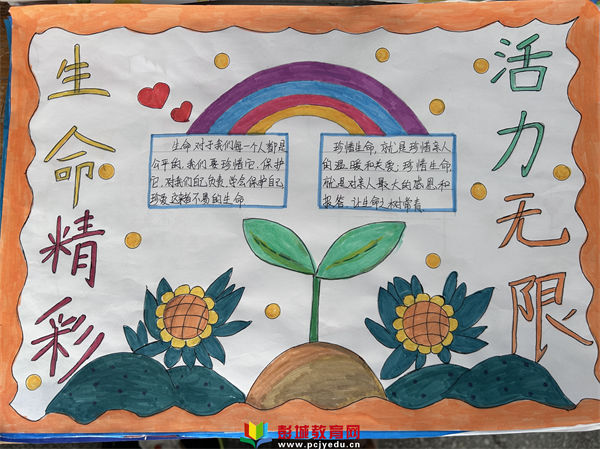 生命精彩
活力无限
生命对于我们每一个人都是
公平的,我们要珍惜它、保护
它,对我们自己负责,学会保护自己,
珍爱这来之不易的生命
珍惜生命,就是珍惜亲人
的温暖和关爱;珍惜生命,
就是对亲人最大的感恩和
报答,让生命之树常青
彭城教育网
www.pcjyedu.cn